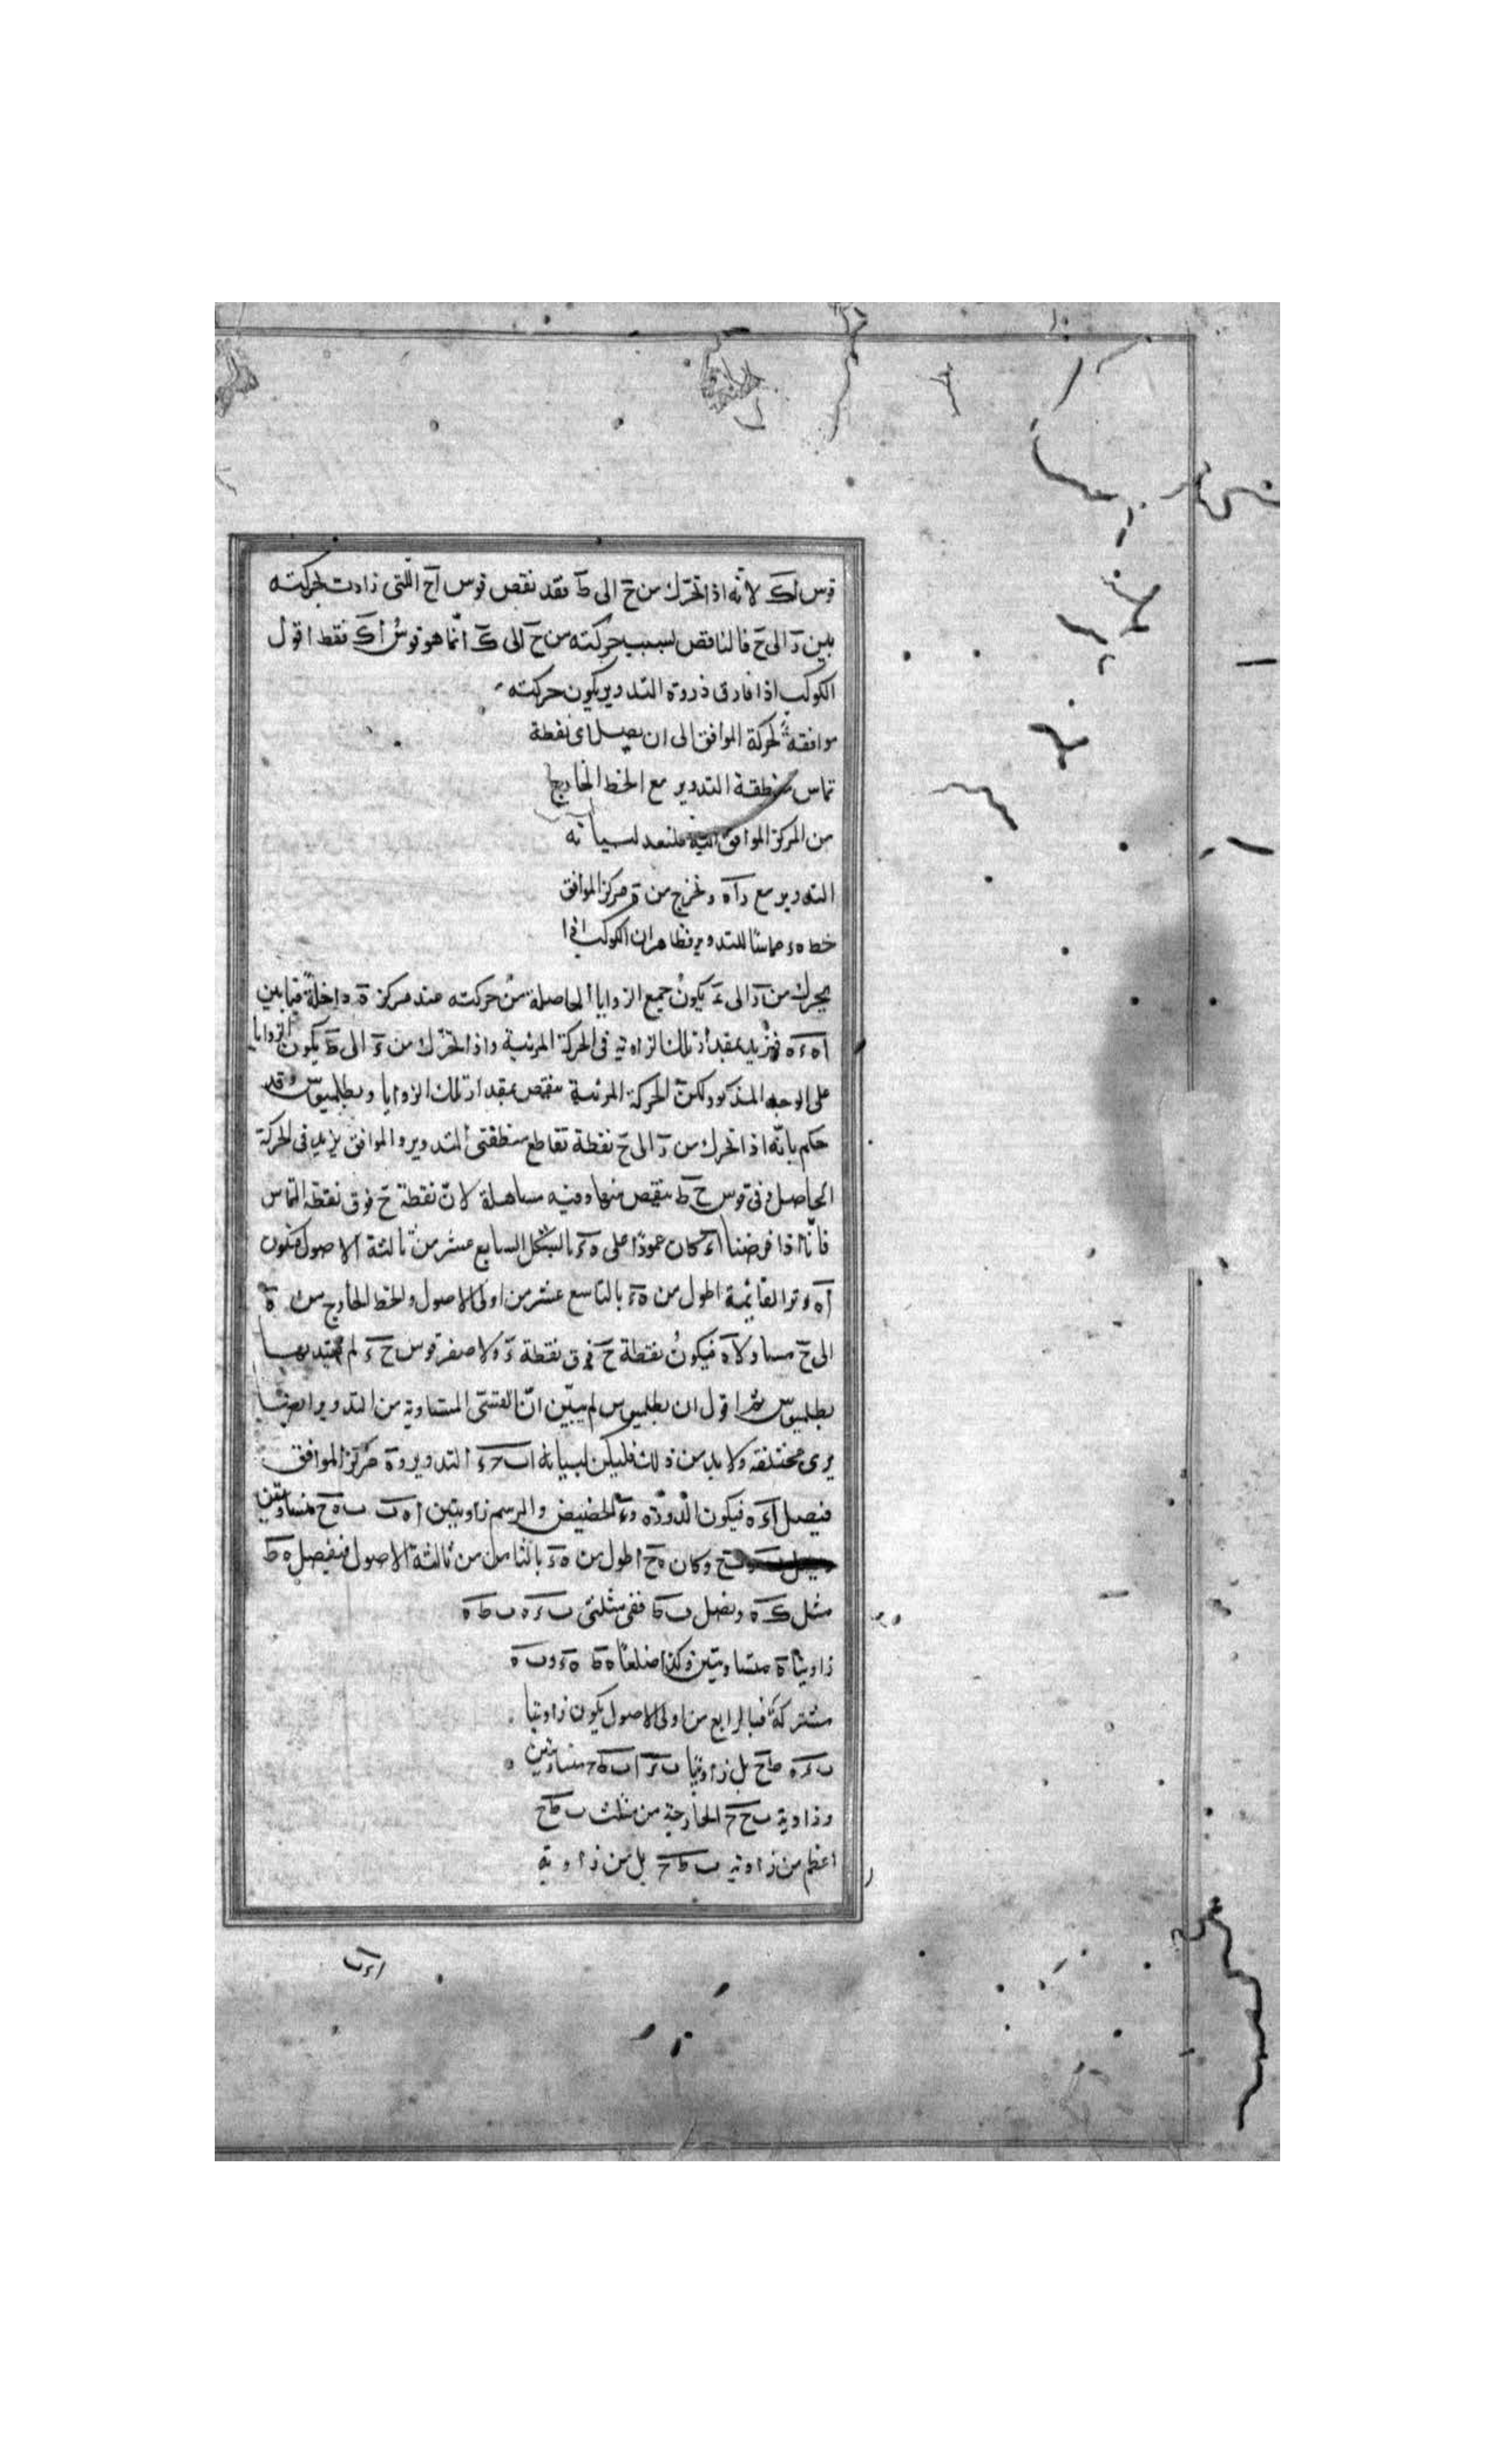 قوس اک لانّه اذا تحرّك من ح الى ط فقد نقص قوس اح اللّتى زادت لحركته
بين د الى ح فالناقص بسبب حركته من ح الى ک انّما هو قوس اک فقط اقول
الكوكب اذا فارق ذروة التدوير يكون حركته
موافقة لحركة الموافق الى ان يصل الى نقطة
تماس منطقة التدوير مع الخط الخارج
من المركز الموافق اليه فلنعد لبيانه
التدوير مع داه ونخرج من ه مركز الموافق
خط هء مماسّا للتدوير فظاهر ان الكوكب اذا
يحرك من د الى ء يكون جميع الزوايا الحاصلة من حركته عند مركز ه داخلةً فيما بين
اه ءه فيزيد بمقدار تلك الزاوية فى الحركة المرئية واذا تحرّك من ء الى ط يكون الزوايا
على الوجه المذكور ولكنّ الحركة المرئية ينقص بمقدار تلك الزوايا وبطلميوس وقد
حكم بانّه اذا تحرك من د الى ح نقطة تقاطع منطقتى التدوير والموافق يزيد فى الحركة
الحاصل وفى قوس ح ط ينقص منها وفيه مساهلة لانّ نقطة ح فوق نقطة التماس
فانّا اذا فرضنا اء كان عمودًا على هء بالشكل السابع عشر من ثالثة الاصول فيكون
اه وتر القائمة اطول من هء بالتاسع عشر من اولى الاصول والخط الخارج من ه
الى ح مساو لاه فيكون نقطة ح فوق نقطة ء ولاصغر قوس ح ء لم يعتد بها
بطلميوس ثم اقول ان بطلميوس لم يبيّن انّ القسّى المتساوية من التدوير ايضًا
يرى مختلفة ولا بد من ذلك فليكن لبيانه ا ب ح ء التدوير و ه مركز الموافق
فنصل اءه فيكون الذروة وء الحضيض والرسم زاويتين اه ب ب ه ح متساويتين
وكان ه ح اطول من هء بالثامن من ثالثة الاصول فنفصل ه ط
مثل ء ه ونصل ب ط ففى مثلثى ب ء ه ب ط ه
زاويتا ه متساويتين وكذا ضلعا ه ط هء و ب ه
مشتركة فبالرابع من اولى الاصول يكون زاويتا
ب ء ه بل زاويتا ب ء ا ب ط ح متساويتين
وزاوية ب ح ح الخارجة من مثلث ب ط ح
اعظم من زاوية ب ط ح بل من زاوية
اءب